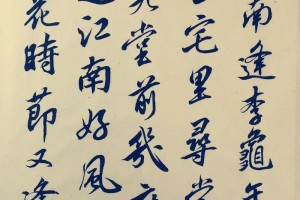 南逢李龜年
宅里尋常
堂前幾度
是江南好風
花時節又逢